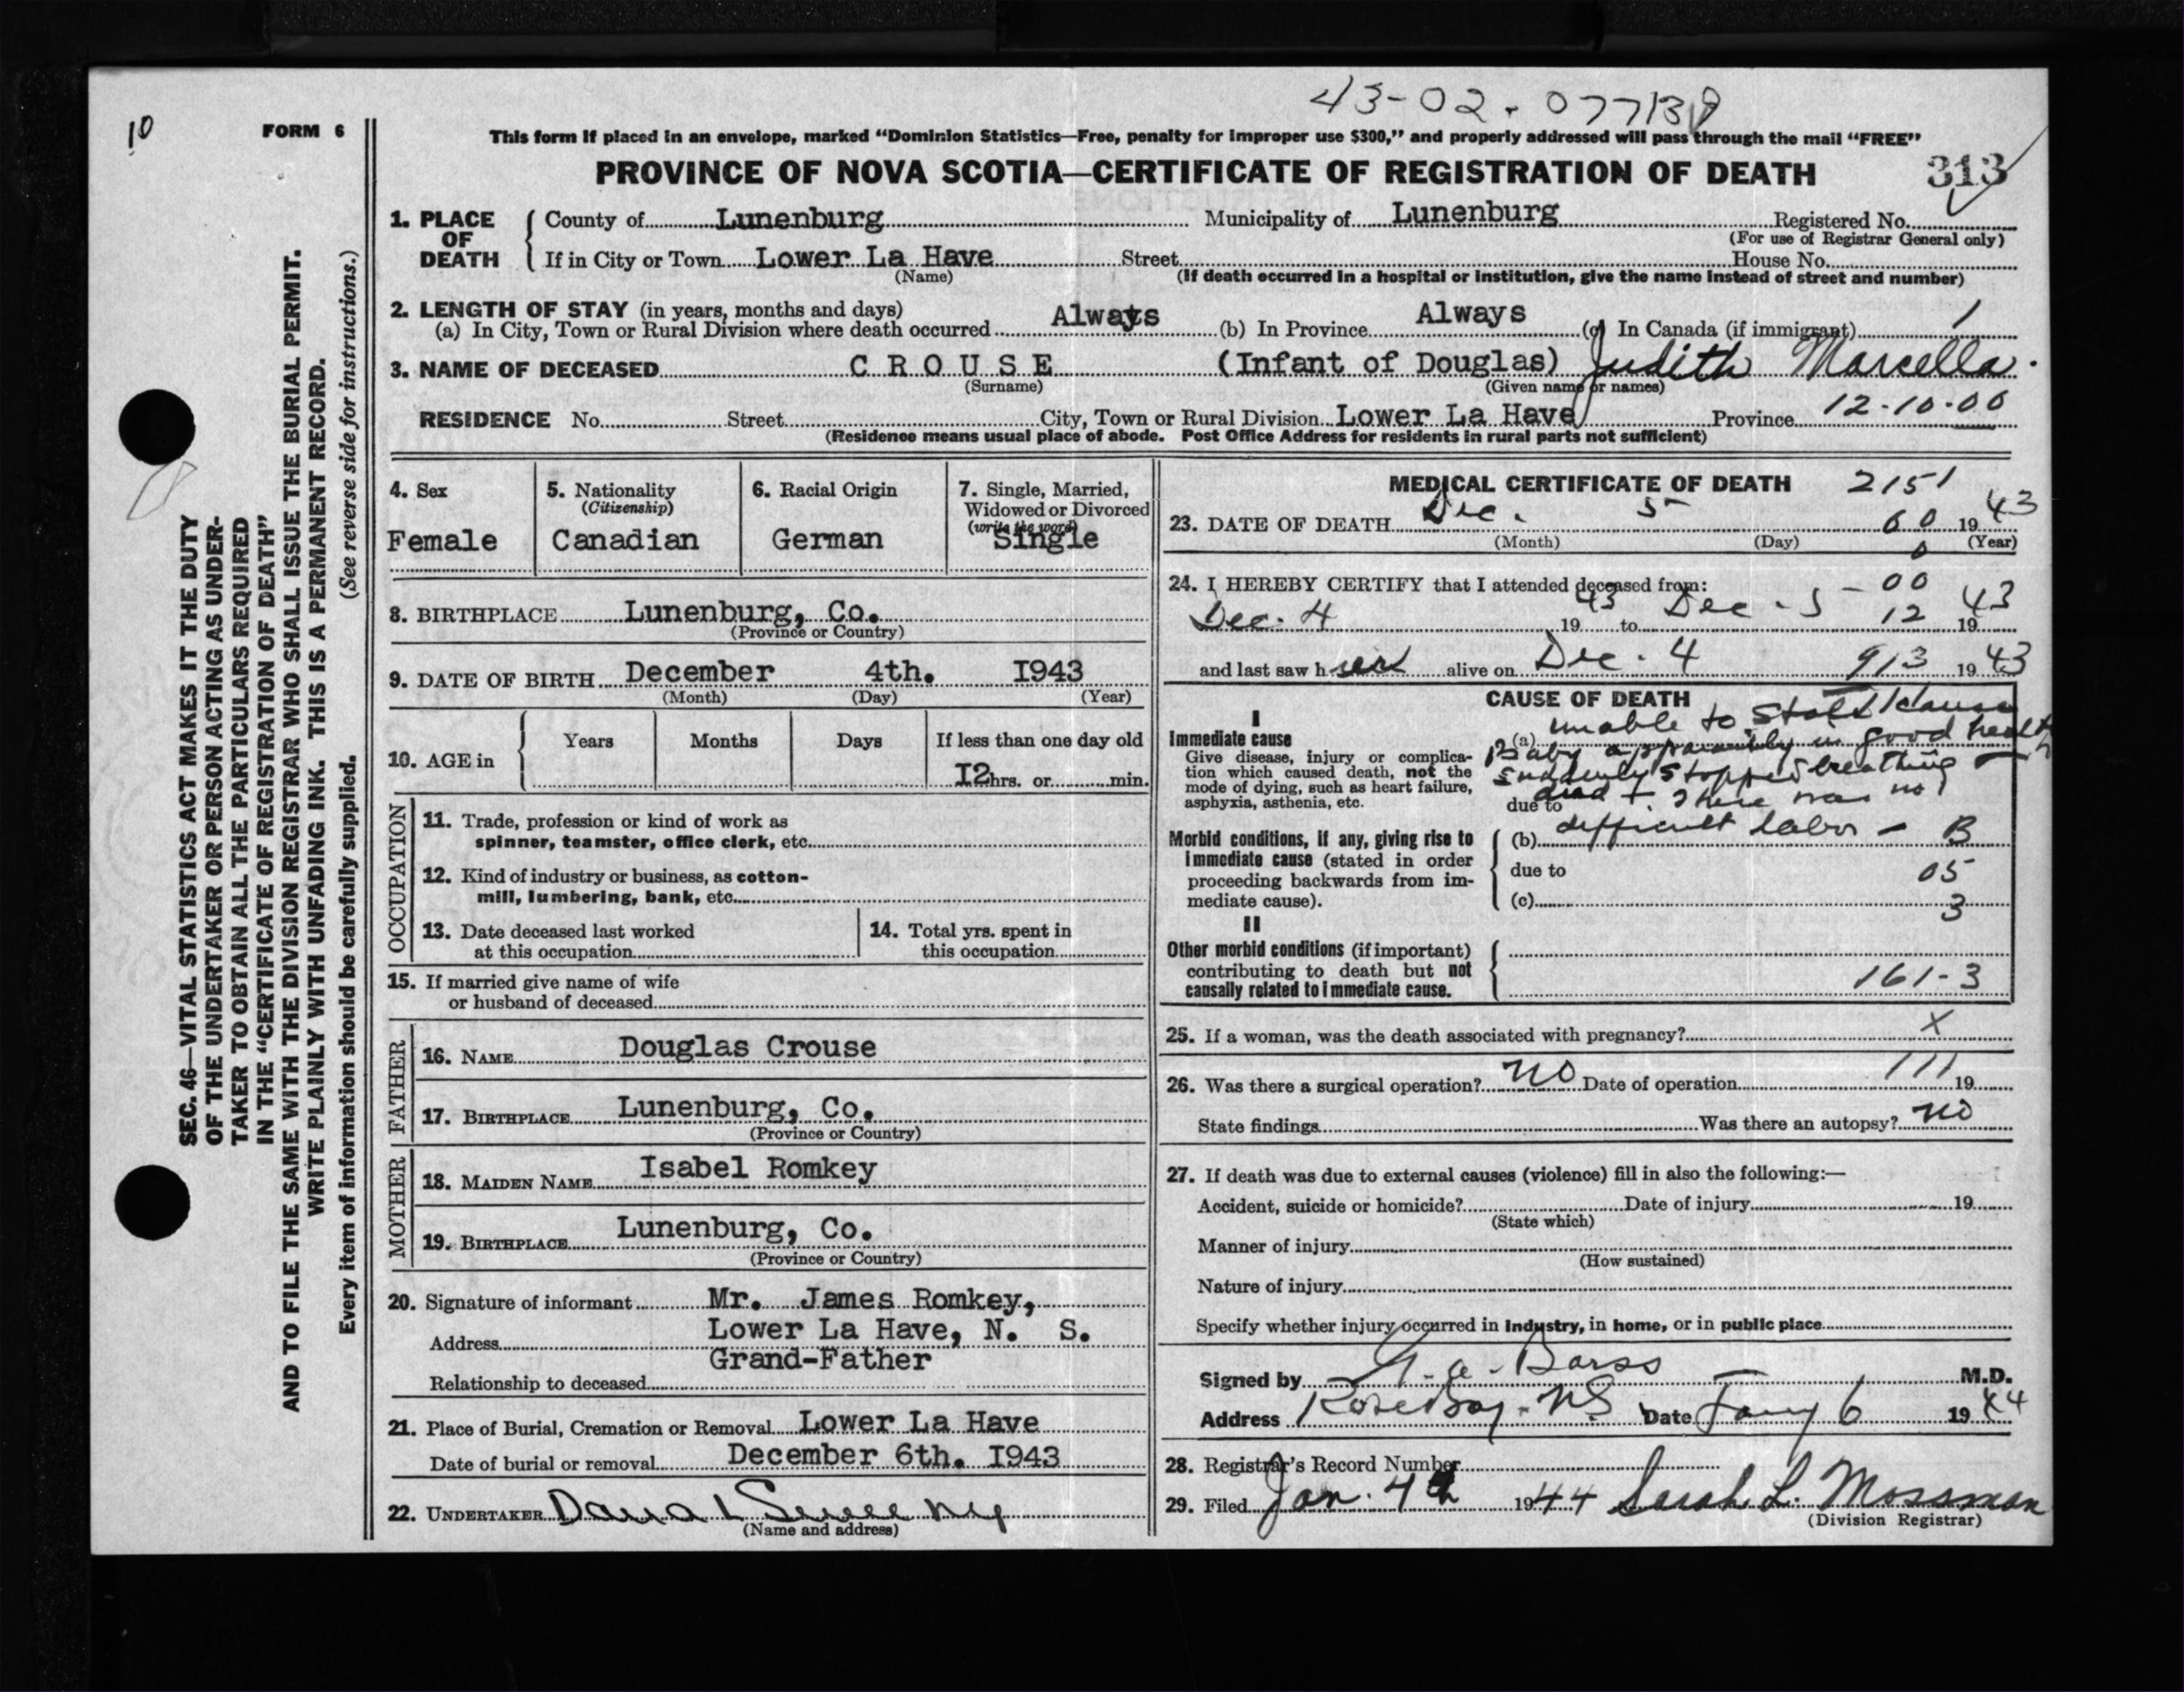 43-02-077138
10
FORM 6
This form if placed in an envelope, marked “Dominion Statistics—Free, penalty for improper use $300,” and properly addressed will pass through the mail “FREE”
PROVINCE OF NOVA SCOTIA—CERTIFICATE OF REGISTRATION OF DEATH
313
1. PLACE OF DEATH
County of Lunenburg Municipality of Lunenburg Registered No.
(For use of Registrar General only)
If in City or Town Lower La Have Street House No.
(Name) (If death occurred in a hospital or institution, give the name instead of street and number)
2. LENGTH OF STAY (in years, months and days)
(a) In City, Town or Rural Division where death occurred Always (b) In Province Always (c) In Canada (if immigrant) 1
3. NAME OF DECEASED C R O U S E (Infant of Douglas) Judith Marcella.
(Surname) (Given name or names)
RESIDENCE No. Street City, Town or Rural Division Lower La Have Province 12-10-00
(Residence means usual place of abode. Post Office Address for residents in rural parts not sufficient)
4. Sex
Female
5. Nationality
(Citizenship)
Canadian
6. Racial Origin
German
7. Single, Married,
Widowed or Divorced
(write the word)
Single
8. BIRTHPLACE Lunenburg, Co.
(Province or Country)
9. DATE OF BIRTH December 4th. I943
(Month) (Day) (Year)
10. AGE in
Years Months Days If less than one day old
I2 hrs. or min.
OCCUPATION
11. Trade, profession or kind of work as
spinner, teamster, office clerk, etc.
12. Kind of industry or business, as cotton-
mill, lumbering, bank, etc.
13. Date deceased last worked
at this occupation
14. Total yrs. spent in
this occupation
15. If married give name of wife
or husband of deceased
FATHER
16. NAME Douglas Crouse
17. BIRTHPLACE Lunenburg, Co.
(Province or Country)
MOTHER
18. MAIDEN NAME Isabel Romkey
19. BIRTHPLACE Lunenburg, Co.
(Province or Country)
20. Signature of informant Mr. James Romkey,
Address Lower La Have, N. S.
Grand-Father
Relationship to deceased
21. Place of Burial, Cremation or Removal Lower La Have
Date of burial or removal December 6th. I943
22. UNDERTAKER
(Name and address)
MEDICAL CERTIFICATE OF DEATH 2151
23. DATE OF DEATH Dec. 5 60 19 43
(Month) (Day) (Year)
0
24. I HEREBY CERTIFY that I attended deceased from: 00
Dec. 4 19 43 to Dec - 5 - 12 19 43
and last saw her alive on Dec. 4 913 19 43
CAUSE OF DEATH
I
Immediate cause
Give disease, injury or complica-
tion which caused death, not the
mode of dying, such as heart failure,
asphyxia, asthenia, etc.
unable to state cause
(a) Baby apparently in good health
suddenly stopped breathing
due to dead + there was no
(b) difficult labor - B
Morbid conditions, if any, giving rise to
immediate cause (stated in order
proceeding backwards from im-
mediate cause).
due to 05
(c) 3
II
Other morbid conditions (if important)
contributing to death but not
causally related to immediate cause.
161-3
25. If a woman, was the death associated with pregnancy? X
26. Was there a surgical operation? no Date of operation 111 19
State findings Was there an autopsy? no
27. If death was due to external causes (violence) fill in also the following:—
Accident, suicide or homicide? Date of injury 19
(State which)
Manner of injury
(How sustained)
Nature of injury
Specify whether injury occurred in Industry, in home, or in public place
Signed by Barss M.D.
Address Rose Bay. NS Date Jany 6 19 44
28. Registrar's Record Number
29. Filed Jan. 4th 1944 Sarah L. Mossman
(Division Registrar)
SEC. 46—VITAL STATISTICS ACT MAKES IT THE DUTY
OF THE UNDERTAKER OR PERSON ACTING AS UNDER-
TAKER TO OBTAIN ALL THE PARTICULARS REQUIRED
IN THE “CERTIFICATE OF REGISTRATION OF DEATH”
AND TO FILE THE SAME WITH THE DIVISION REGISTRAR WHO SHALL ISSUE THE BURIAL PERMIT.
WRITE PLAINLY WITH UNFADING INK. THIS IS A PERMANENT RECORD.
Every item of information should be carefully supplied. (See reverse side for instructions.)